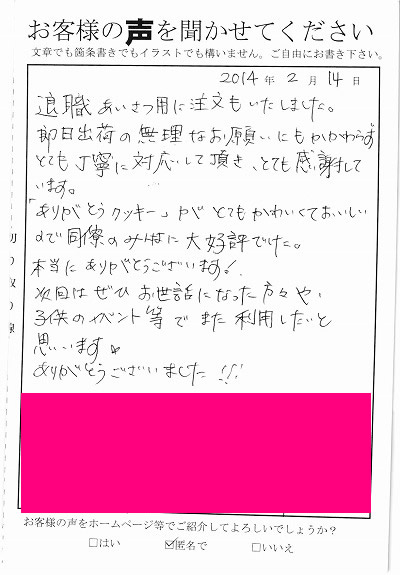 お客様の声を聞かせてください
文章でも箇条書きでもイラストでも構いません。ご自由にお書き下さい。
2014年 2月 14日
退職あいさつ用に注文をいたしました。
即日出荷の無理なお願いにもかかわらず
とても丁寧に対応して頂き、とても感謝して
います。
「ありがとうクッキー」が とてもかわいくておいしい
ので同僚のみんなに大好評でした。
本当にありがとうございます!
次回はぜひお世話になった方々や、
子供のイベント等でまた利用したいと
思います
ありがとうございました!!
お客様の声をホームページ等でご紹介してよろしいでしょうか?
□はい ☑匿名で □いいえ